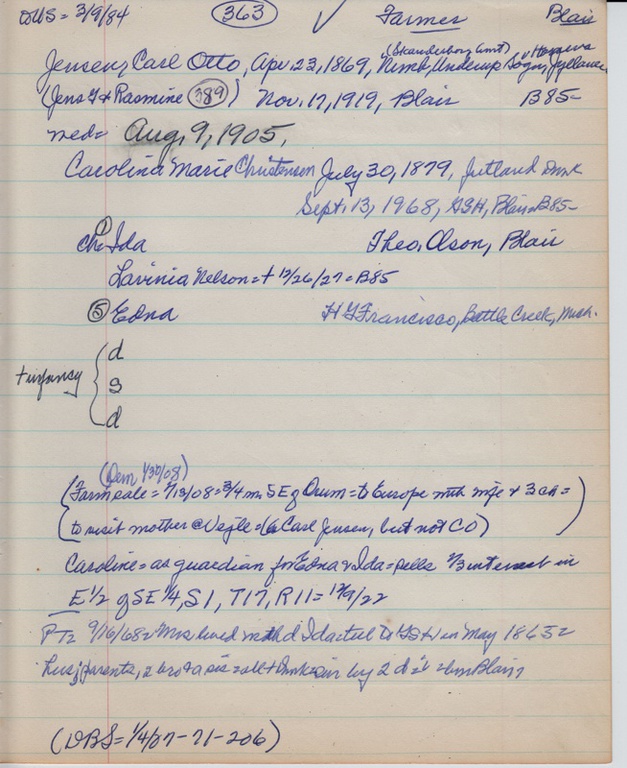 DWS = 3/9/84 (363) ✓ Farmer Blair
(Skanderborg Amt)
Jensen, Carl Otto, Apr. 23, 1869, Nimb, Underup Sogn, Jylland
(Jens Y + Rasmine (389)) Nov. 17, 1919, Blair B85=
med= Aug. 9, 1905,
Carolina Marie Christensen July 30, 1879, Jutland Dmk
Sept. 13, 1968, GSH, Blair=B85=
ch= Ida Theo. Olson, Blair
Lavinia Nelson=+ 12/26/27=B85
(5) Edna H G Francisco, Battle Creek, Mich.
d
+ infancy s
d
(Dem 1/30/08)
(Farm sale = 1/13/08=3/4 m. SE of Orum = to Europe with wife + 3 ch =
to visit mother @ Vejle = (a Carl Jensen, but not CO)
Caroline = as guardian for Edna + Ida = sells 2/3 interest in
E 1/2 of SE 1/4, S1, T17, R11 = 12/9/22
PT= 9/16/68= Mrs lived with d Ida = til to GSH in May 1865=
hus, parents, 2 bro + a sis = all + by 2 d Blair,
(DBS=1/4/07-71-206)